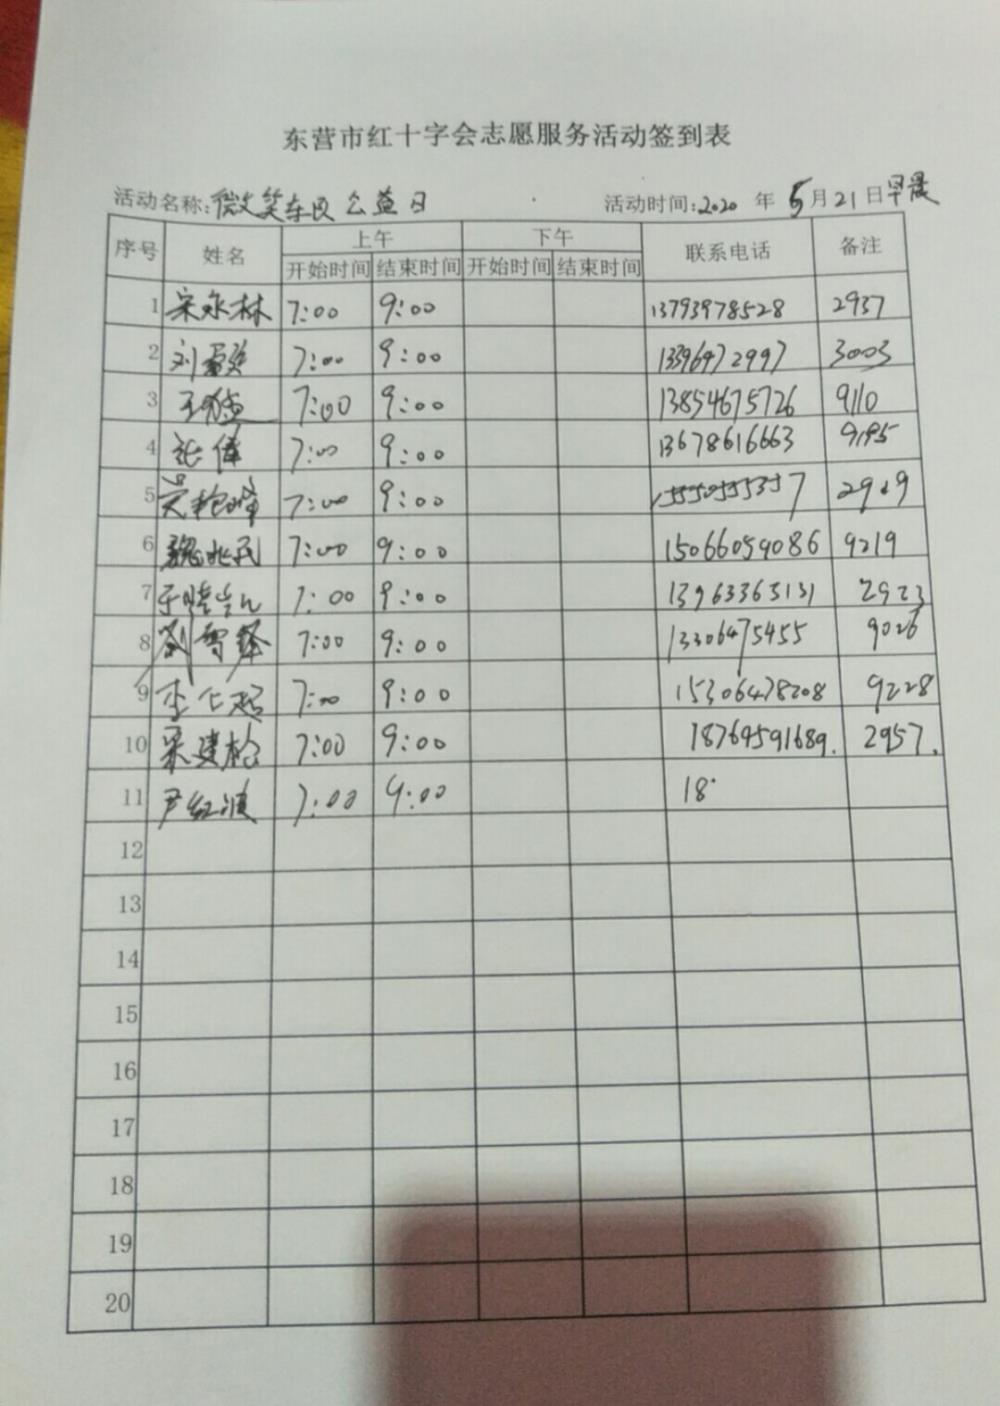 东营市红十字会志愿服务活动签到表
活动名称:微笑东西公益日 活动时间:2020 年 5月21日早晨
序号 姓名 上午 下午 联系电话 备注
开始时间 结束时间 开始时间 结束时间
1 宋永林 7:00 9:00 13793978528 2937
2 刘 7:00 9:00 13396472997 3003
3 王 7:00 9:00 13854675726 9110
4 张伟 7:00 9:00 13678616663 9195
5 吴艳峰 7:00 9:00 2929
6 魏兆民 7:00 9:00 15066059086 9219
7 于 7:00 9:00 13963365131 2923
8 刘智锋 7:00 9:00 13306475455 9026
9 李仁超 7:00 9:00 15306478208 9228
10 梁建松 7:00 9:00 18769591689. 2957.
11 尹红波 7:00 9:00 18
12
13
14
15
16
17
18
19
20